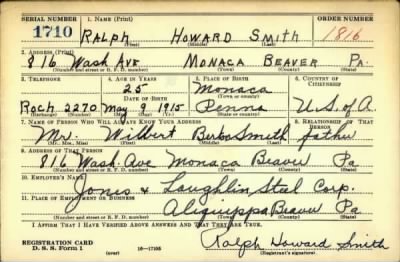 SERIAL NUMBER 1. NAME (Print) ORDER NUMBER
1710 RALPH HOWARD SMITH 1816
(First) (Middle) (Last)
2. ADDRESS (Print)
816 WASH AVE MONACA BEAVER PA.
(Number and street or R. F. D. number) (Town) (County) (State)
3. TELEPHONE 4. AGE IN YEARS 5. PLACE OF BIRTH 6. COUNTRY OF CITIZENSHIP
25 Monaca
DATE OF BIRTH (Town or county)
Roch. 2270 May 9 1915 Penna U.S. of A
(Exchange) (Number) (Mo.) (Day) (Yr.) (State or country)
7. NAME OF PERSON WHO WILL ALWAYS KNOW YOUR ADDRESS 8. RELATIONSHIP OF THAT PERSON
Mr. Wilbert Smith father
(Mr., Mrs., Miss) (First) (Middle) (Last)
9. ADDRESS OF THAT PERSON
816 Wash. Ave Monaca Beaver Pa
(Number and street or R. F. D. number) (Town) (County) (State)
10. EMPLOYER'S NAME
Jones & Laughlin Steel Corp.
11. PLACE OF EMPLOYMENT OR BUSINESS
Aliquippa Beaver Pa
(Number and street or R. F. D. number) (Town) (County) (State)
I AFFIRM THAT I HAVE VERIFIED ABOVE ANSWERS AND THAT THEY ARE TRUE.
Ralph Howard Smith
REGISTRATION CARD
D. S. S. Form 1 (over) 16—17105 (Registrant's signature)